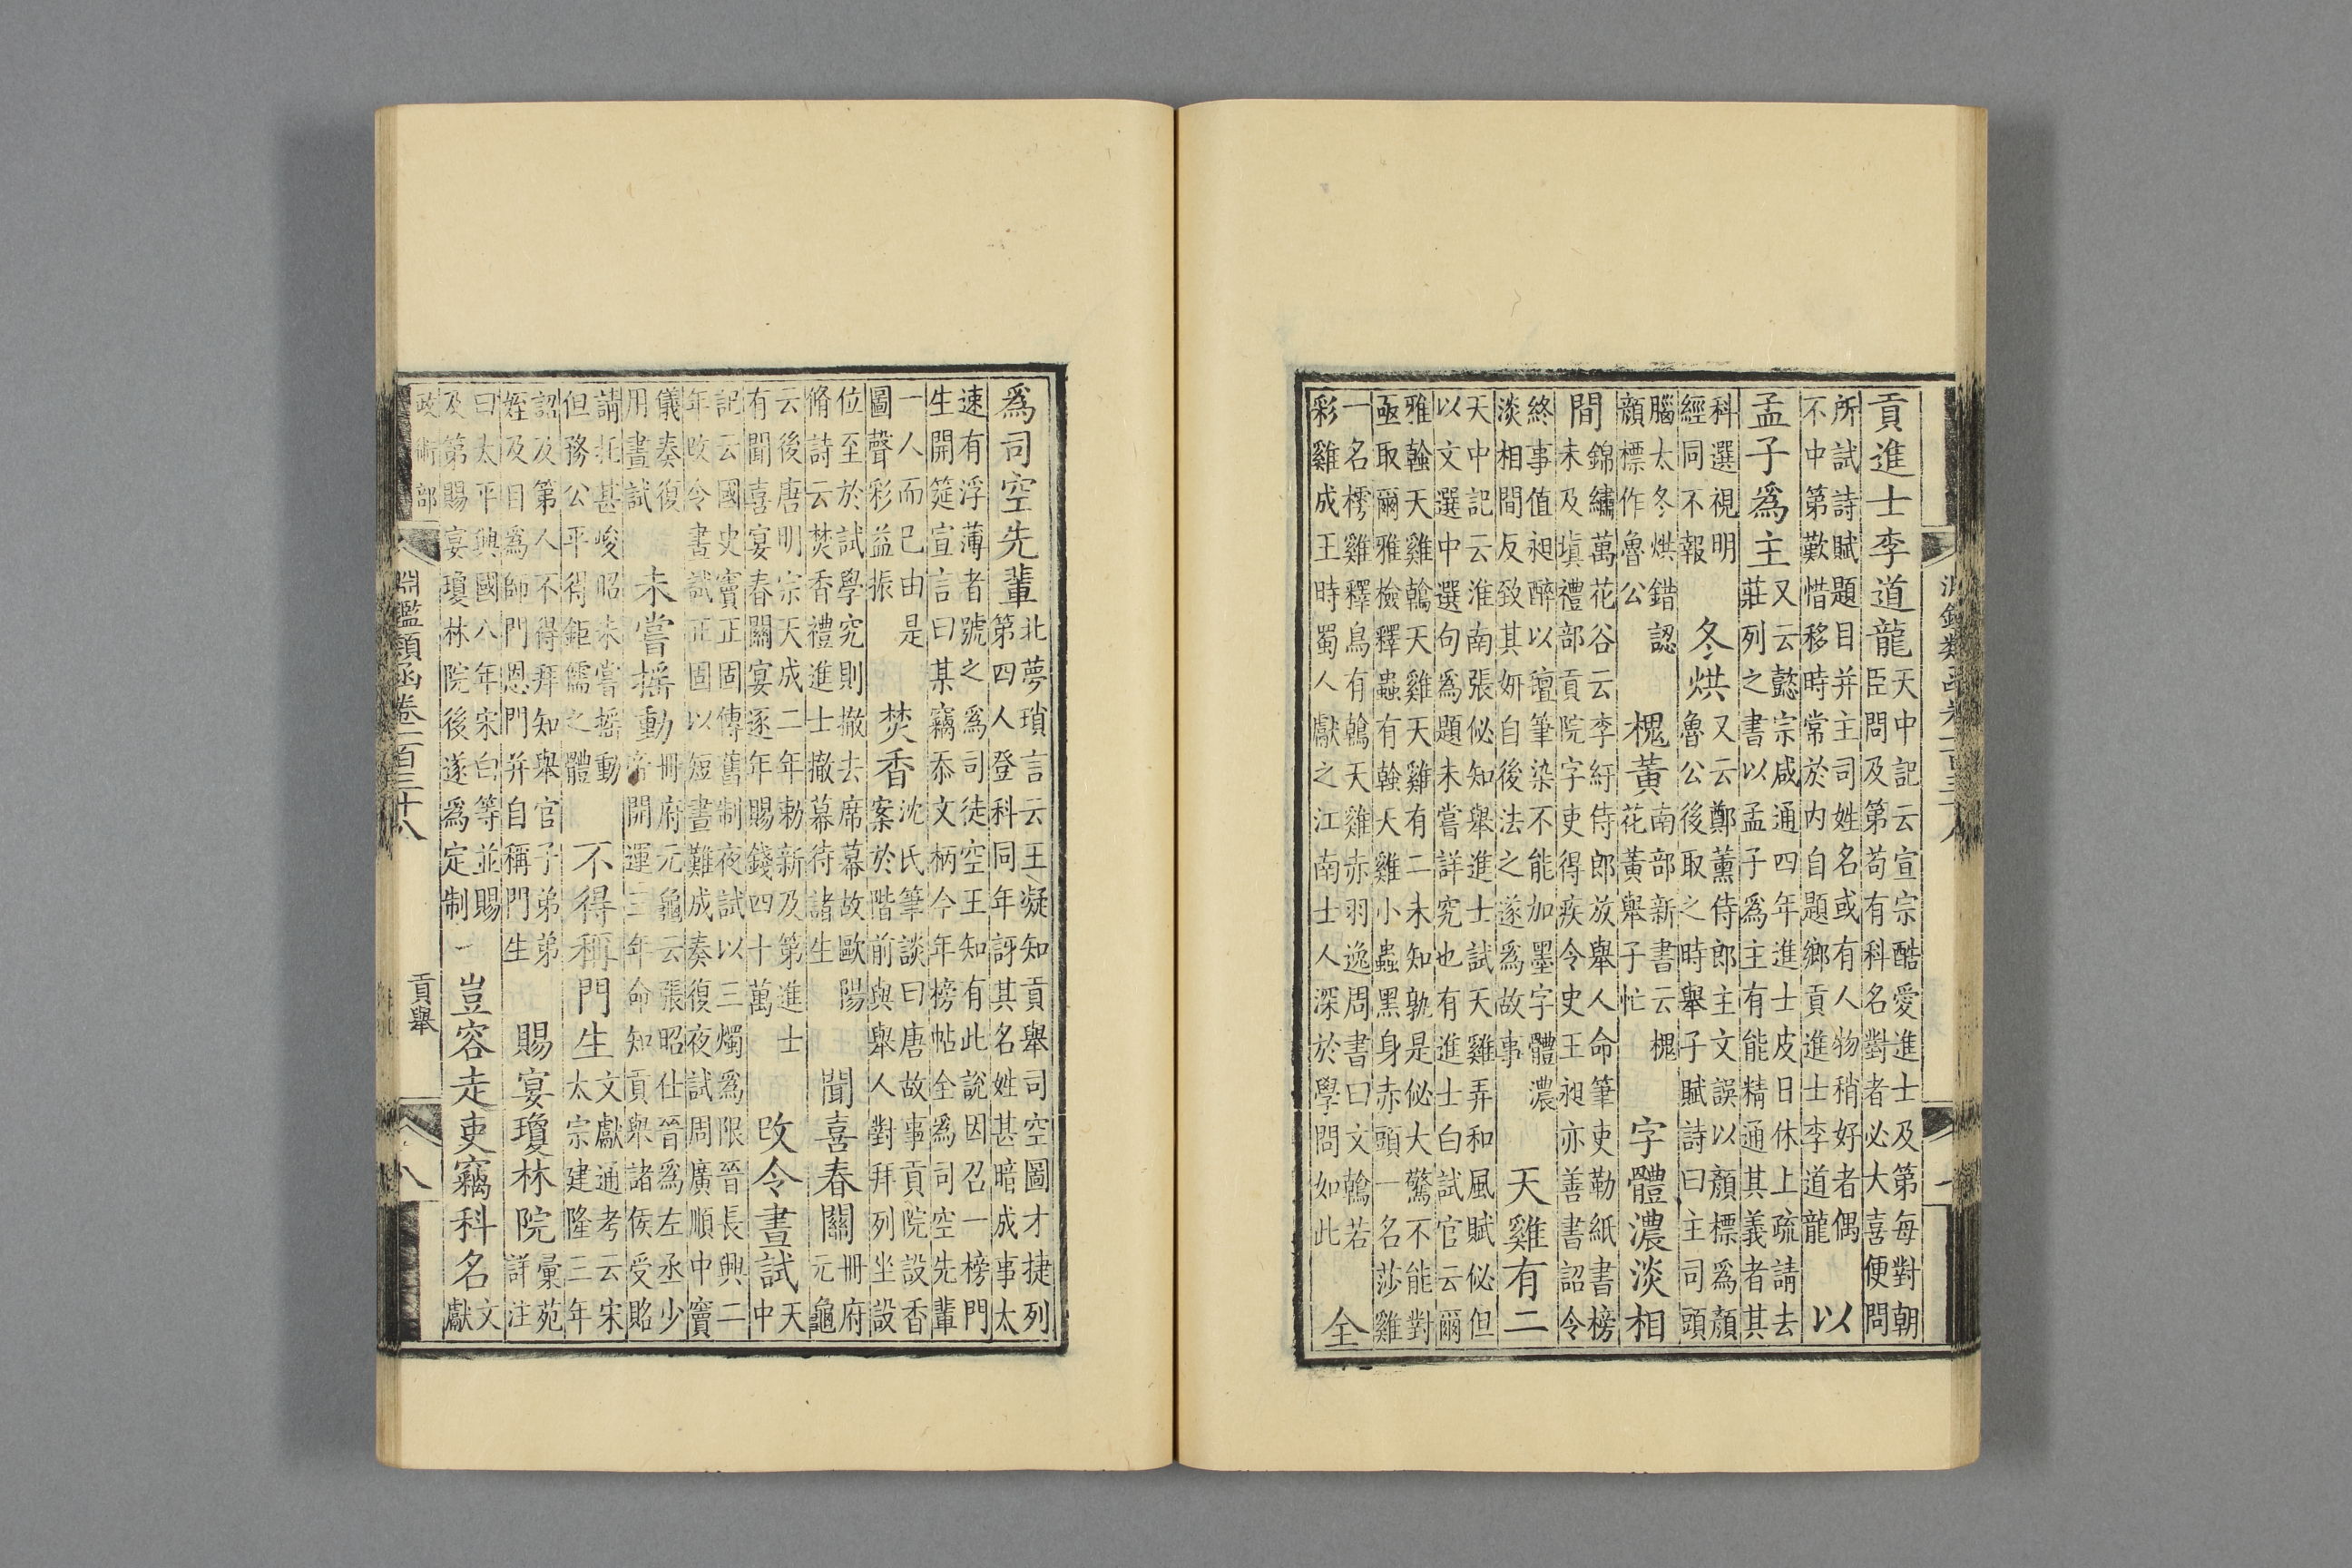 淵鑑類函卷一百三十八
貢進士李道龍
天中記云宣宗酷愛進士及第每對朝
臣問及第苟有科名對者必大喜便問
所試詩賦題目并主司姓名或有人物稍好者偶
不中第歎惜移時常於内自題鄉貢進士李道龍
以
孟子爲主
又云懿宗咸通四年進士皮日休上疏請去
莊列之書以孟子爲主有能精通其義者其
科選視明
經同不報
冬烘
又云鄭薰侍郎主文誤以顏標爲顏
魯公後取之時舉子賦詩曰主司頭
腦太冬烘錯認
顏標作魯公
槐黃
南部新書云槐
花黃舉子忙
字體濃淡相
間
錦繡萬花谷云李紆侍郎放舉人命筆吏勒紙書榜
未及塡禮部貢院字吏得疾令史王昶亦善書詔令
終事值昶醉以氊筆染不能加墨字體濃
淡相間反致其妍自後法之遂爲故事
天雞有二
天中記云淮南張佖知舉進士試天雞弄和風賦佖但
以文選中選句爲題未嘗詳究也有進士白試官云爾
雅螒天雞鶾天雞天雞有二未知孰是佖大驚不能對
亟取爾雅檢釋蟲有螒天雞小蟲黑身赤頭一名莎雞
一名樗雞釋鳥有鶾天雞赤羽逸周書曰文鶾若
彩雞成王時蜀人獻之江南士人深於學問如此
全
爲司空先輩
北夢瑣言云王凝知貢舉司空圖才捷列
第四人登科同年訝其名姓甚暗成事太
速有浮薄者號之爲司徒空王知有此說因召一榜門
生開筵宣言曰某竊忝文柄今年榜帖全爲司空先輩
一人而已由是
圖聲彩益振
焚香
沈氏筆談曰唐故事貢院設香
案於階前與舉人對拜列坐設
位至於試學究則撤去席幕故歐陽
脩詩云焚香禮進士撤幕待諸生
聞喜春關
冊府
元龜
云後唐明宗天成二年勅新及第進士
有聞喜宴春關宴逐年賜錢四十萬
改令晝試
天
中
記云國史竇正固傳舊制夜試以三燭爲限晉長興二
年改令書試正固以短晝難成奏復夜試周廣順中竇
儀奏復
用晝試
未嘗搖動
冊府元龜云張昭仕晉爲左丞少
帝開運三年命知貢舉諸侯受賂
請托甚峻昭未嘗搖動
但務公平得鉅儒之體
不得稱門生
文獻通考云宋
太宗建隆三年
詔及第人不得拜知舉官子弟弟
姪及目爲師門恩門并自稱門生
賜宴瓊林院
彙苑
詳注
曰太平興國八年宋白等並賜
及第賜宴瓊林院後遂爲定制
豈容走吏竊科名
文
獻
政術部
淵鑑類函卷一百三十八
貢舉一
八